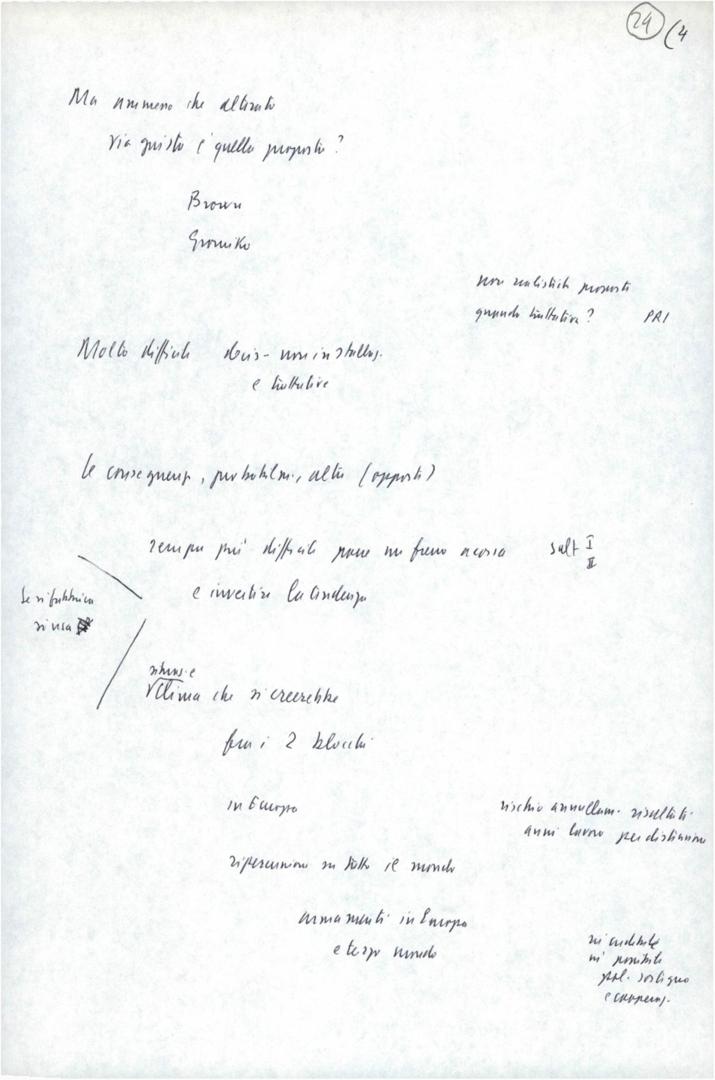 24 (4
Ma ammeno che alterato
via giusta è quella proposta?
Brown
Gromiko
non realistiche proposte
quando trattativa? PRI
Molto difficile decis- non installaz.
e trattative
le conseguenze, probabilm., altre (opposte)
sempre più difficile porre un freno a corsa Salt I
II
e invertire la tendenza
Se si fabbrica
si usa
Clima che si creerebbe
fra i 2 blocchi
in Europa
rischio annullam. risultati
anni lavoro per distensione
ripercussioni su tutto il mondo
armamenti in Europa
e terzo mondo
né credibile
né possibile
pol. sostegno
e cooperaz.